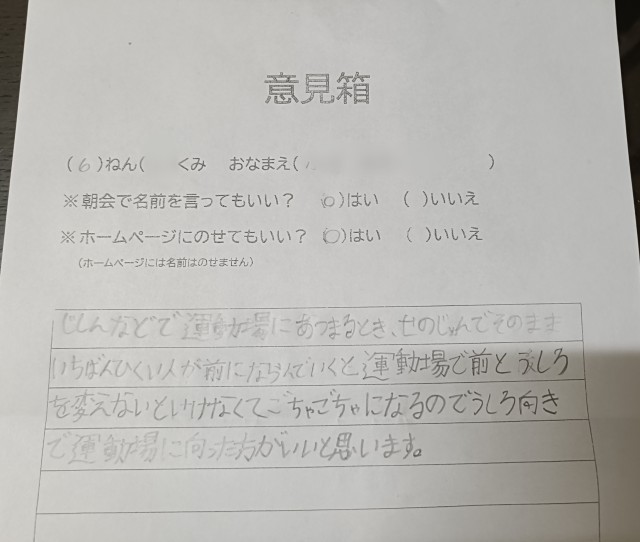 意見箱
(6)ねん( くみ おなまえ( )
※朝会で名前を言ってもいい? (○)はい ( )いいえ
※ホームページにのせてもいい? (○)はい ( )いいえ
(ホームページには名前はのせません)
じしんなどで運動場にあつまるとき、せのじゅんでそのまま
いちばんひくい人が前にならんでいくと、運動場で前とうしろ
を変えないといけなくてごちゃごちゃになるのでうしろ向き
で運動場に向った方がいいと思います。